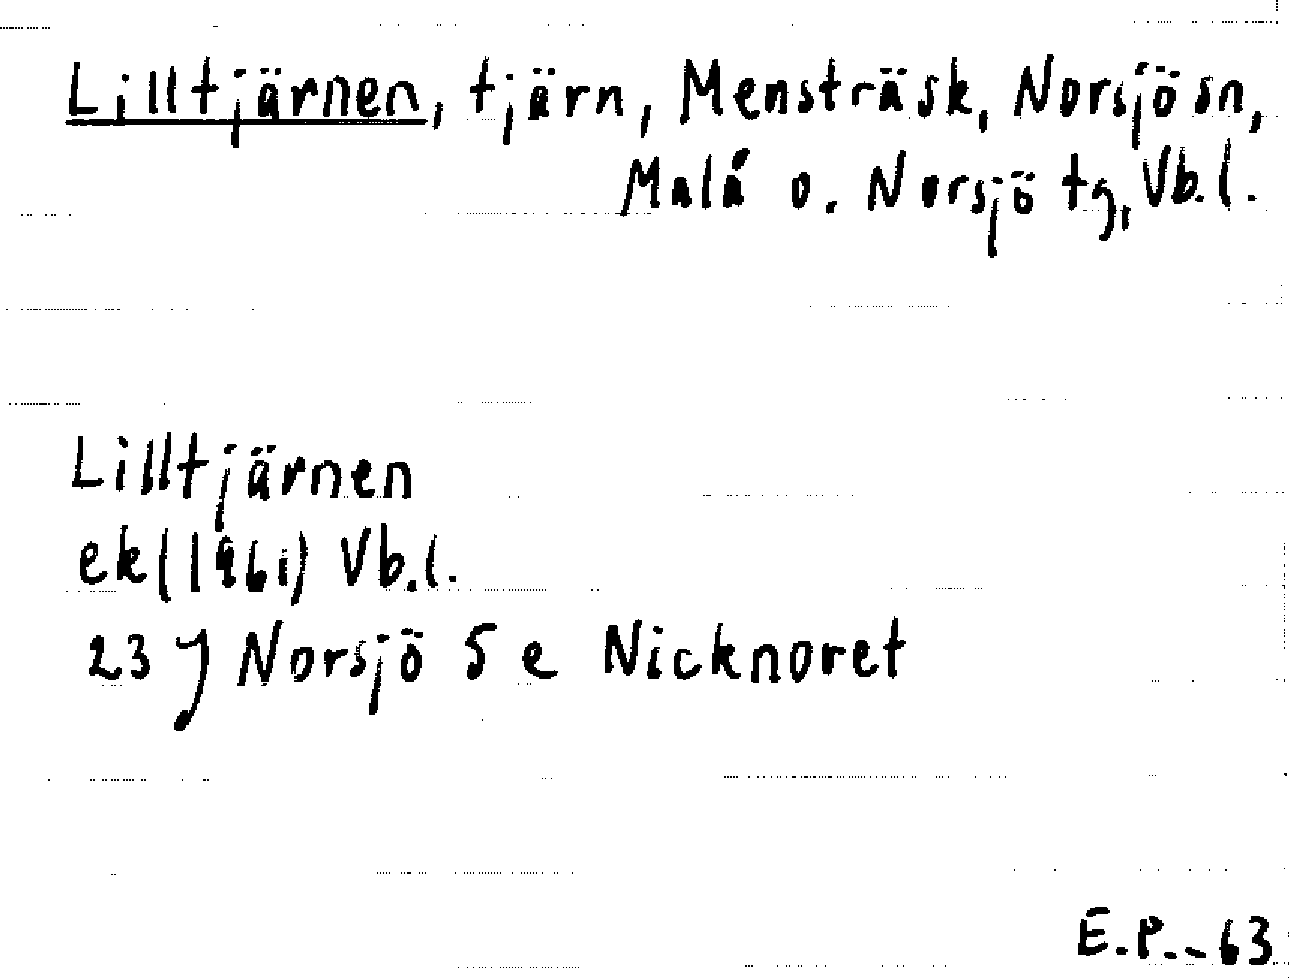 Lilltjärnen, tjärn, Mensträsk, Norsjösn,
Malå o. Norsjö tg, Vb.l.
Lilltjärnen
ek(1961) Vb.l.
23 J Norsjö 5 e Nicknoret
E.P.-63